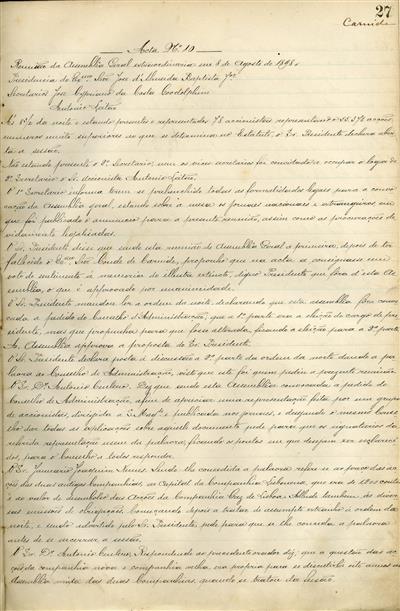 27
Carnide
Acta Nº 10
Reunião da Assemblea Geral extraordinaria em 8 de Agosto de 1898
Presidencia do Exmo Snr José d'Almeida Baptista
Secretarios José Cypriano da Costa Goodolphim
Antonio Leitão
da noite e estando presentes e representados 78 accionistas representando 55.576 acções
numero muito superior ao que se determina no Estatuto, o Ex. Presidente declara aberta
a sessão.
Não estando presente o 2º Secretario nem os vices secretarios foi convidado a occupar o logar de
2º Secretario o Sr. accionista Antonio Leitão.
O 1º Secretario informa terem se preenchido todas as formalidades legaes para a convocação
da Assemblea geral, estando sobre a mesa os jornaes nacionaes e estrangeiros em
que foi publicado o annuncio para a presente reunião, assim como as procurações devidamente
legalisadas.
O Sr. Presidente disse que sendo esta reunião de Assemblea Geral a primeira, depois de ter
fallecido o Exmo Snr Conde de Carnide, propunha que na acta se consignasse um
voto de sentimento á memoria do illustre extincto, digno Presidente que fora d'esta Assemblea,
o que é approvado por unanimidade.
O Sr. Presidente mandou ler a ordem da noite, declarando que esta assemblea fora convocada
a pedido do Conselho d'Administração, que a 1ª parte era a eleição do cargo de presidente,
mas que propunha para que fosse alterada, ficando a eleição para a 2ª parte
A Assemblea approva a proposta do Ex. Presidente.
O Sr. Presidente declara posta á discussão a 2ª parte da ordem da noite dando a palavra
ao Conselho de Administração, visto que este foi quem pediu a presente reunião.
O Ex. Dr. Antonio Centeno. Diz que sendo esta Assemblea convocada a pedido do
Conselho de Administração, afim de apreciar uma representação feita por um grupo
de accionistas, dirigida a S. Magde e publicada nos jornaes, e desejando o mesmo Conselho
dar todas as explicações sobre aquelle documento pede para que os signatarios da
referida representação usem da palavra, ficando os pontos em que desejam ser esclarecidos,
para o Conselho a todos responder.
O Ex. Januario Joaquim Nunes. Sendo lhe concedida a palavra refere se ao preço das acções
das duas antigas Companhias, ao Capital da Companhia Lisbonense, que era de contos
e ao valor de das Acções da Companhia Gaz de Lisboa. Allude tambem, ás diversas
emissões de obrigações. Começando depois a tratar de assumpto extranho á ordem da
noite, e sendo advertido pelo Sr. Presidente, pede para que se lhe conceda a palavra
antes de se encerrar a sessão.
O Ex. Dr. Antonio Centeno. Respondendo ao precedente orador diz, que a questão das acções
da companhia nova e companhia velha era propria para se discutir
Assemblea mixta das duas Companhias, quando se tratou da fusão.